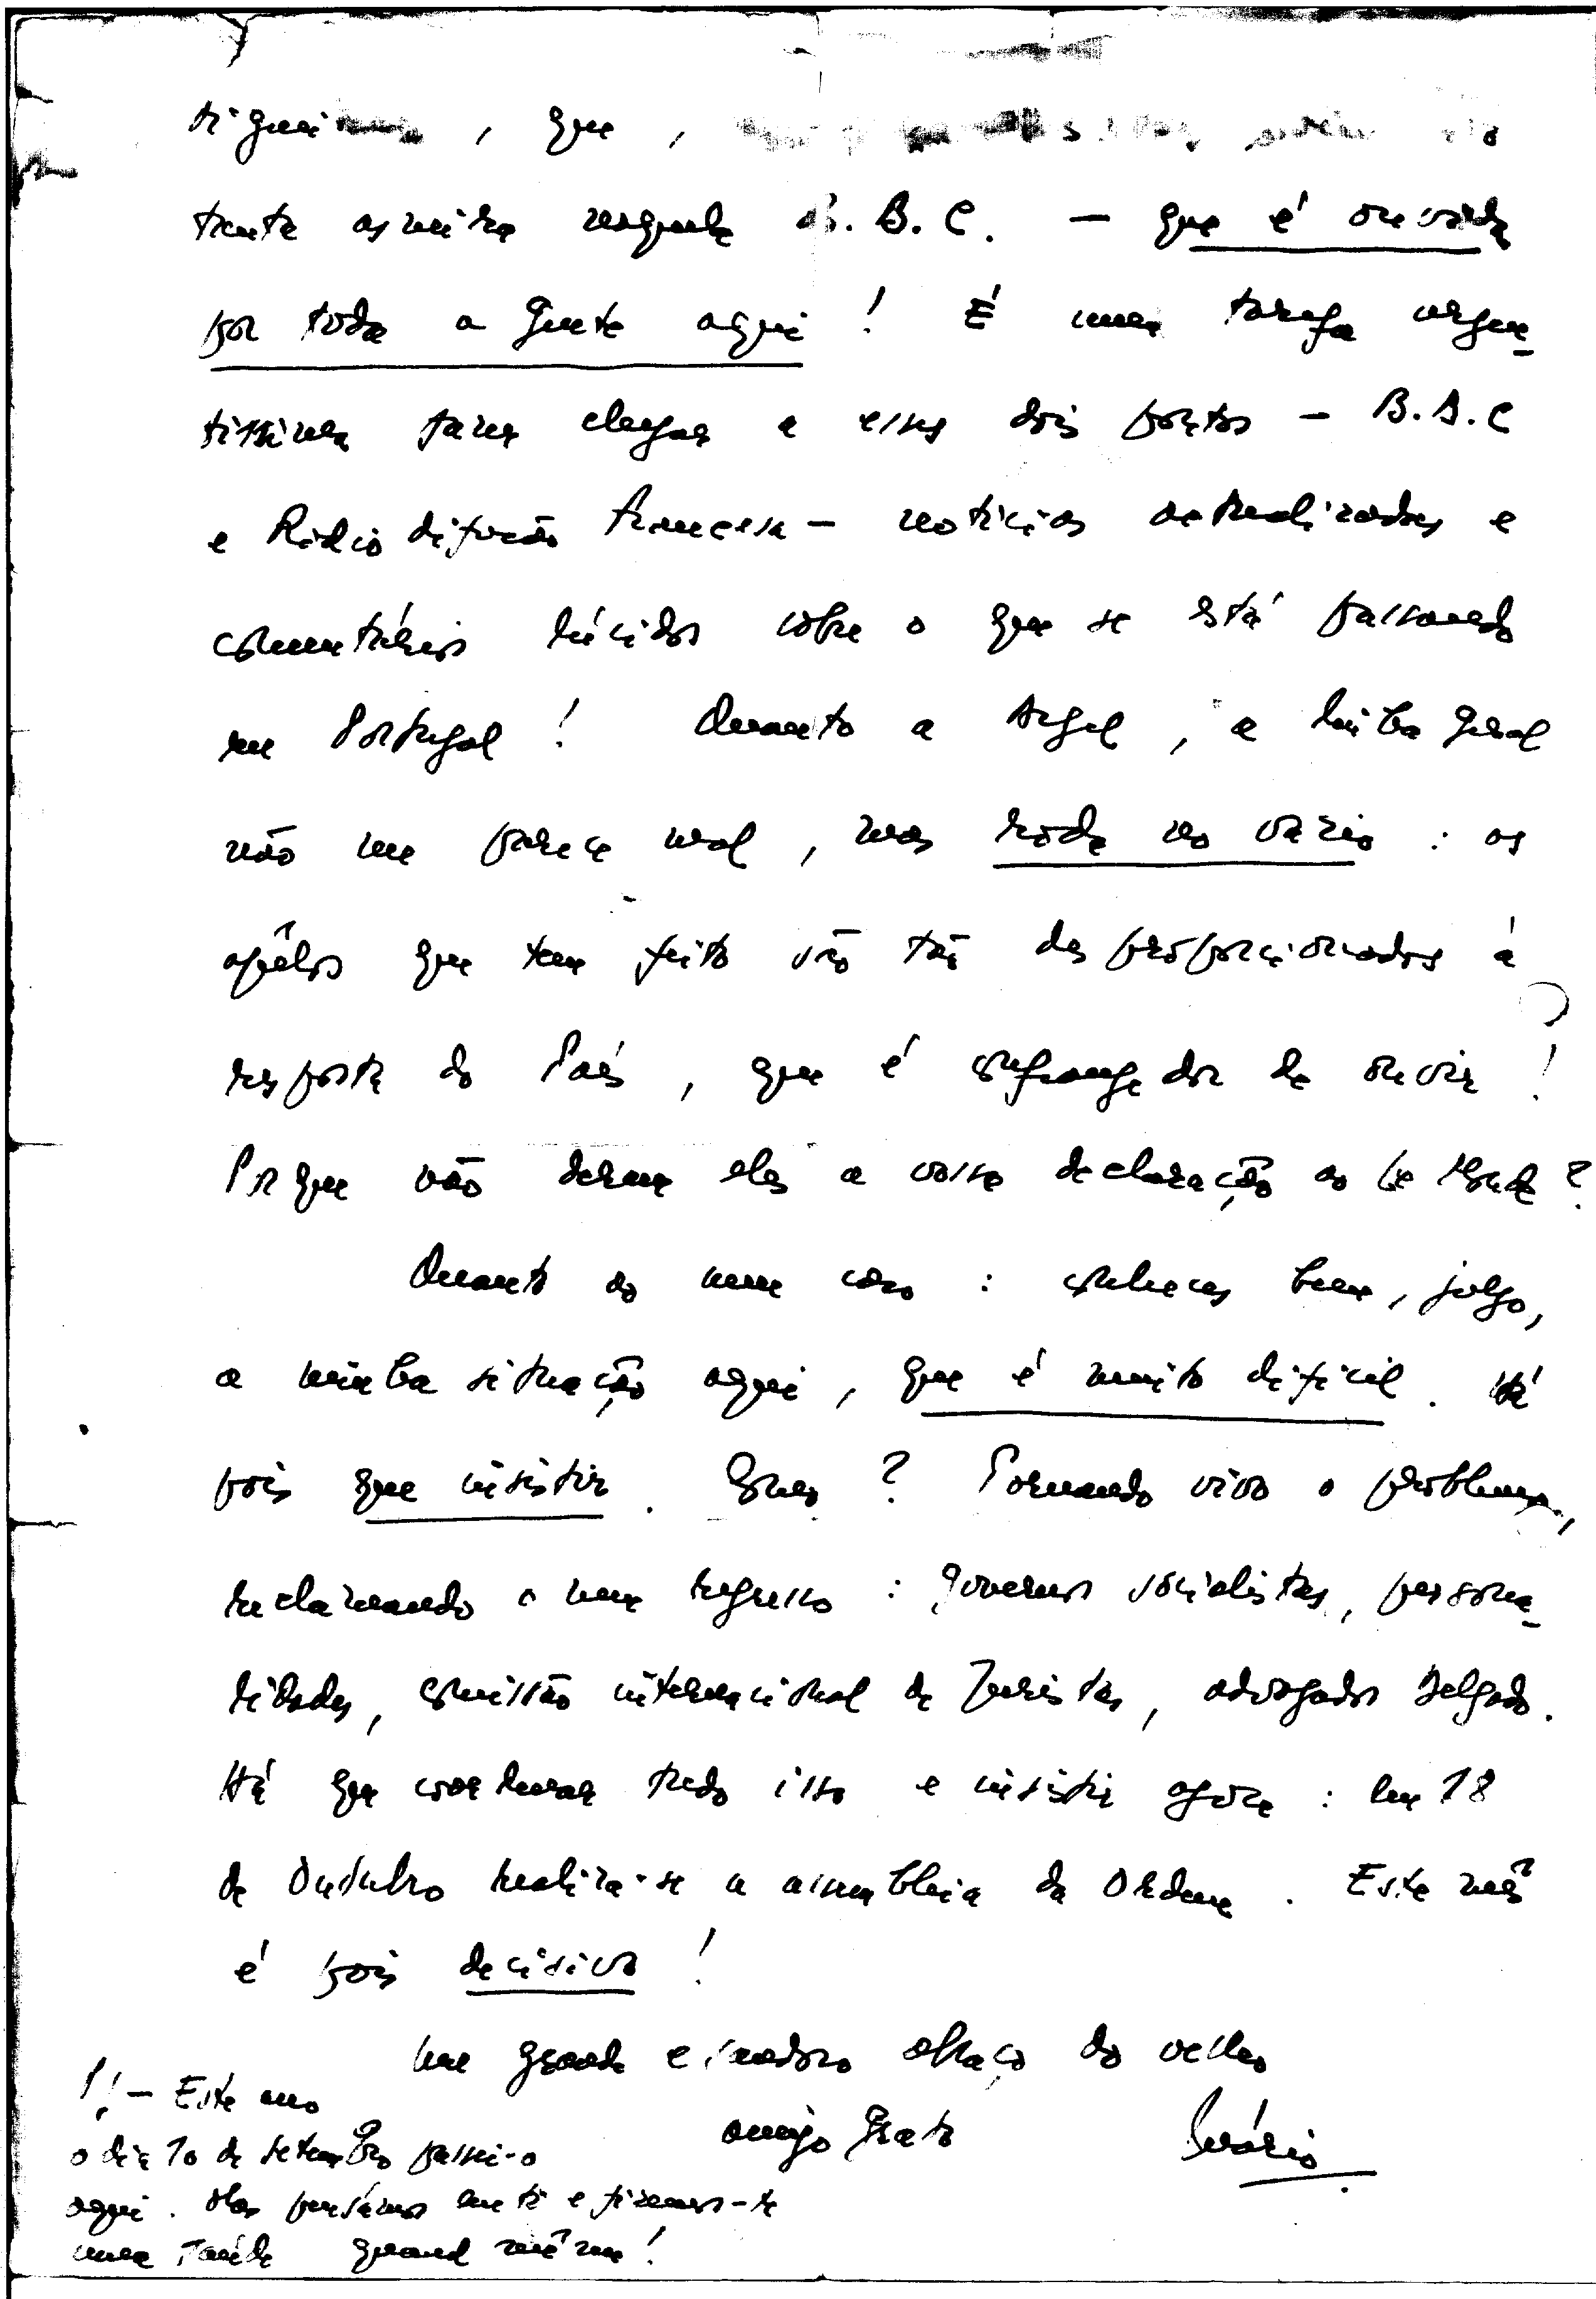 , que,
tente as minha respeito B.B.C. — que é ouvida
por toda a gente aqui! É uma tarefa urgen-
tíssima fazer chegar a esses dois pontos — B.B.C
e Rádio difusão francesa — notícias actualizadas e
comentários lúcidos sobre o que se está passando
em Portugal! Quanto a Argel, a linha geral
não me parece mal, mas roda no vázio: os
apêlos que tem feito são tão desproporcionados à
resposta do País, que é confrangedor de ouvir!
Porque não deram eles a vossa declaração ao Le Monde?
Quanto ao meu caso: conheces bem, julgo,
a minha situação aqui, que é muito difícil. Há
pois que insistir. Como? Tornando vivo o problema,
reclamando o meu regresso: governos socialistas, persona-
lidades, comissão internacional de Juristas, advogados Delgado.
Há que coordenar tudo isso e insistir agora: em 18
de Outubro realiza-se a assembleia da Ordem. Este mês
é pois decisivo!
Um grande e saudoso abraço do velho
amigo grato Mário
P.S. — Este ano
o dia 10 de setembro passei-o
aqui. Mas pensámos em ti e fizemos-te
uma saúde quand même!